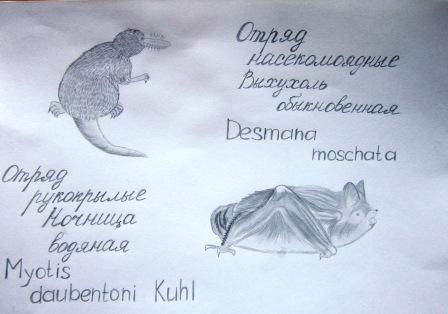 Отряд
насекомоядные
Выхухоль
обыкновенная
Desmana
moschata
Отряд
рукокрылые
Ночница
водяная
Myotis
daubentoni Kuhl